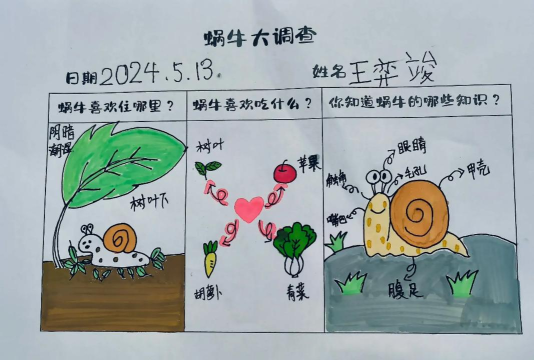 蜗牛大调查
日期2024.5.13.
姓名王弈竣
蜗牛喜欢住哪里？
蜗牛喜欢吃什么？
你知道蜗牛的哪些知识？
阴暗
潮湿
树叶下
树叶
苹果
胡萝卜
青菜
眼睛
毛孔
甲壳
触角
嘴巴
腹足